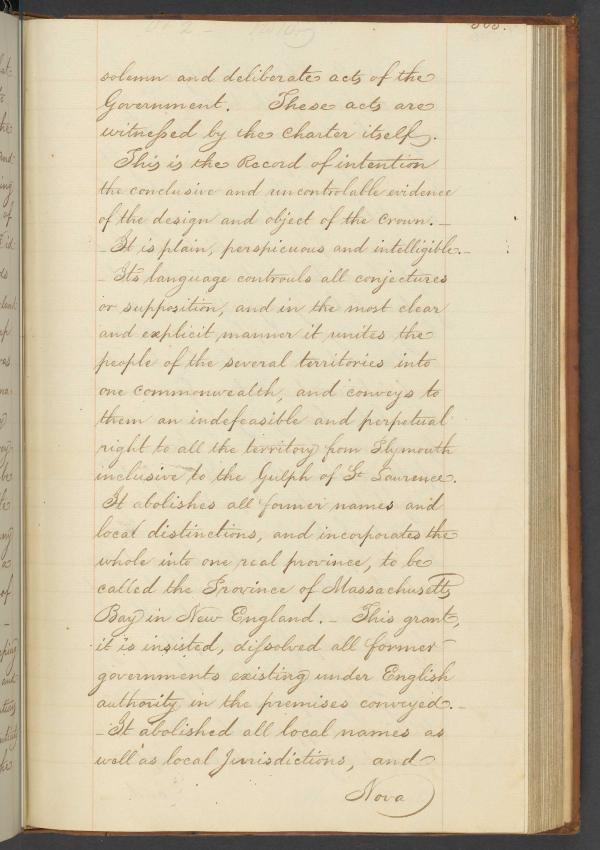 solemn and deliberate acts of the
Government. These acts are
witnessed by the Charter itself.
This is the Record of intention
the conclusive and uncontrolable evidence
of the design and object of the Crown. _
_ It is plain, perspicuous and intelligible. _
_ Its language controuls all conjectures
or supposition, and in the most clear
and explicit manner it unites the
people of the several territories into
one commonwealth, and conveys to
them an indefeasible and perpetual
right to all the territory from Plymouth
inclusive to the Gulph of St Lawrence.
It abolishes all former names and
local distinctions, and incorporates the
whole into one real province, to be
called the Province of Massachusetts
Bay in New England. _ This grant,
it is insisted, dissolved all former
governments existing under English
authority in the premises conveyed. _
_ It abolished all local names as
well as local Jurisdictions, and
Nova